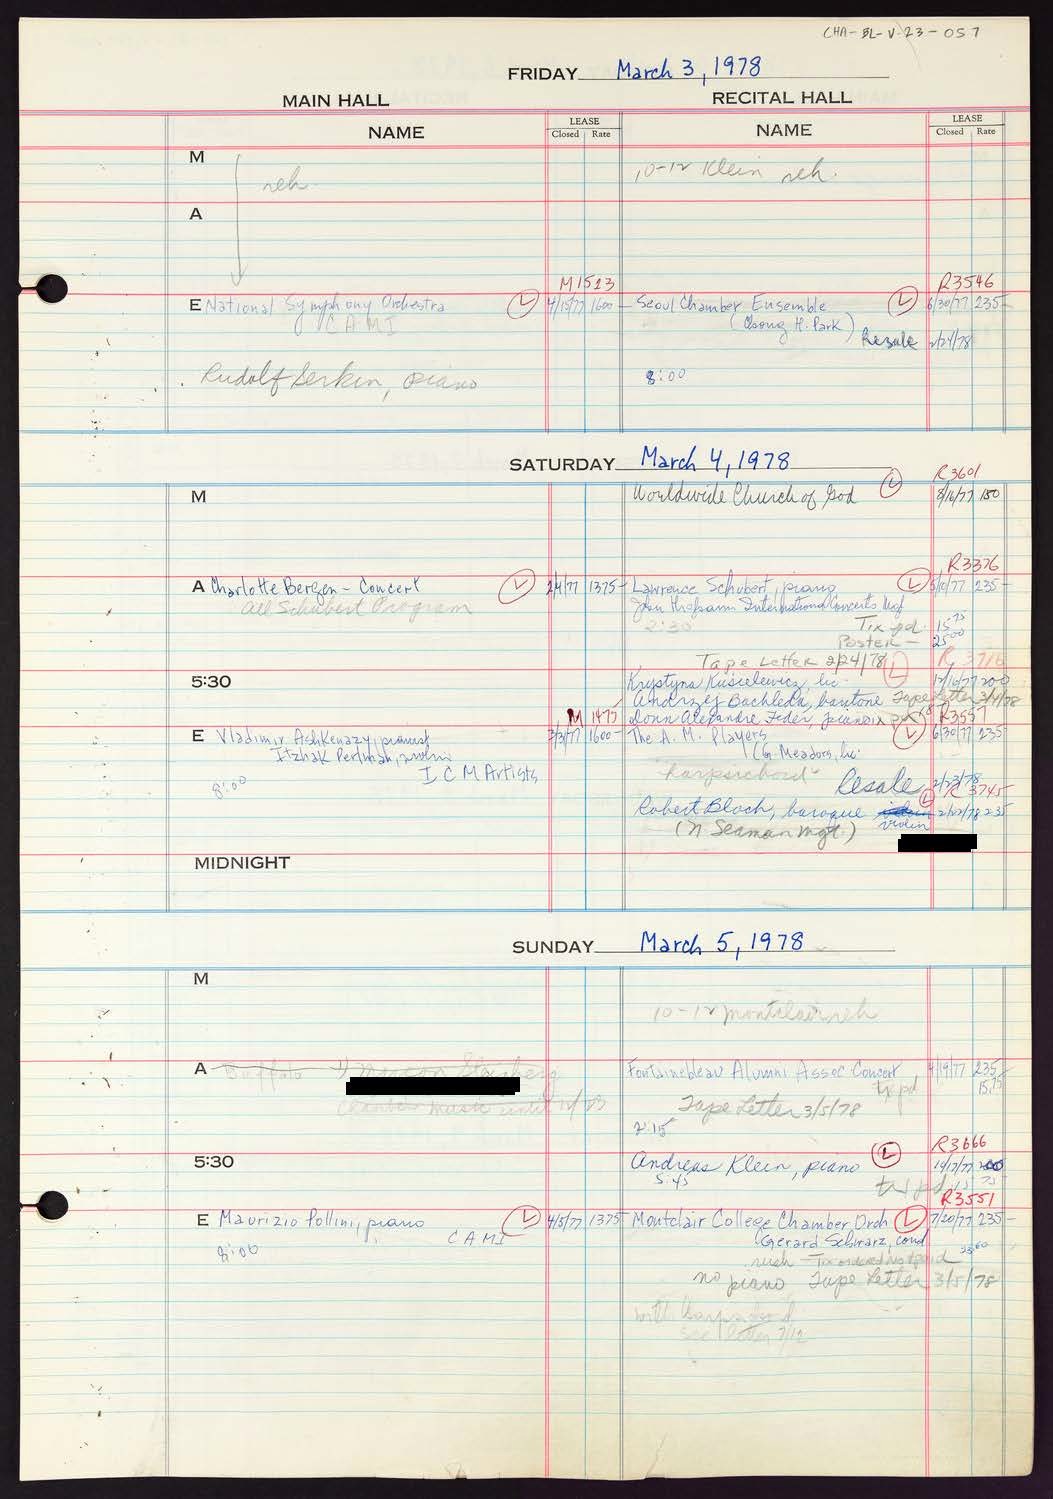 CHA-BL-V-23-057
FRIDAY March 3, 1978
MAIN HALL
RECITAL HALL
NAME
LEASE
Closed Rate
NAME
LEASE
Closed Rate
M
reh.
10-12 Klein reh.
A
M1523
R3546
E National Symphony Orchestra L 1600- Seoul Chamber Ensemble L 6/30/77 235-
CAMI
(Chong H. Park)
Resale 2/24/78
Rudolf Serkin, piano
8:00
SATURDAY March 4, 1978
R3601
M
Worldwide Church of God L 8/16/77 150
R3376
A Charlotte Bergen - Concert L 2/4/77 1375- Lawrence Schubert, piano L 5/10/77 235-
All Schubert Program
International Concerts Mgt
2:30
Tix pd. 15 75
Poster - 25 00
Tape Letter 2/24/78 L R 3716
5:30
Krystyna Kusielewicz, lic. 12/10/77 200
Andrzej Bachleda, baritone Tape Letter 3/4/78
M 1475
Donn Alexandre Feder, pianoix R3557
E Vladimir Ashkenazy, pianist 3/3/77 1600- The A. M. Players L 6/30/77 235-
Itzhak Perlman, violin
(G. Meadors, lic.
ICM Artists
harpsichord
8:00
Resale 2/23/78
L R 3745
Robert Bloch, baroque violin 2/22/78 235
(N Seaman Mgt)
MIDNIGHT
SUNDAY March 5, 1978
M
10-12 Montclair reh
A Buffalo
Fontainebleau Alumni Assoc Concert 4/19/77 235
tx pd 15.75
chamber music until
Tape Letter 3/5/78
2:15
R3666
5:30
Andreas Klein, piano L 200
5:45
tx pd 15 75
R3551
E Maurizio Pollini, piano L 4/5/77 1375- Montclair College Chamber Orch L 7/20/77 235-
CAMI
(Gerard Schwarz, cond
8:00
Tix ordered Not paid
no piano Tape Letter 3/5/78
with harpsichord
see letter 7/12